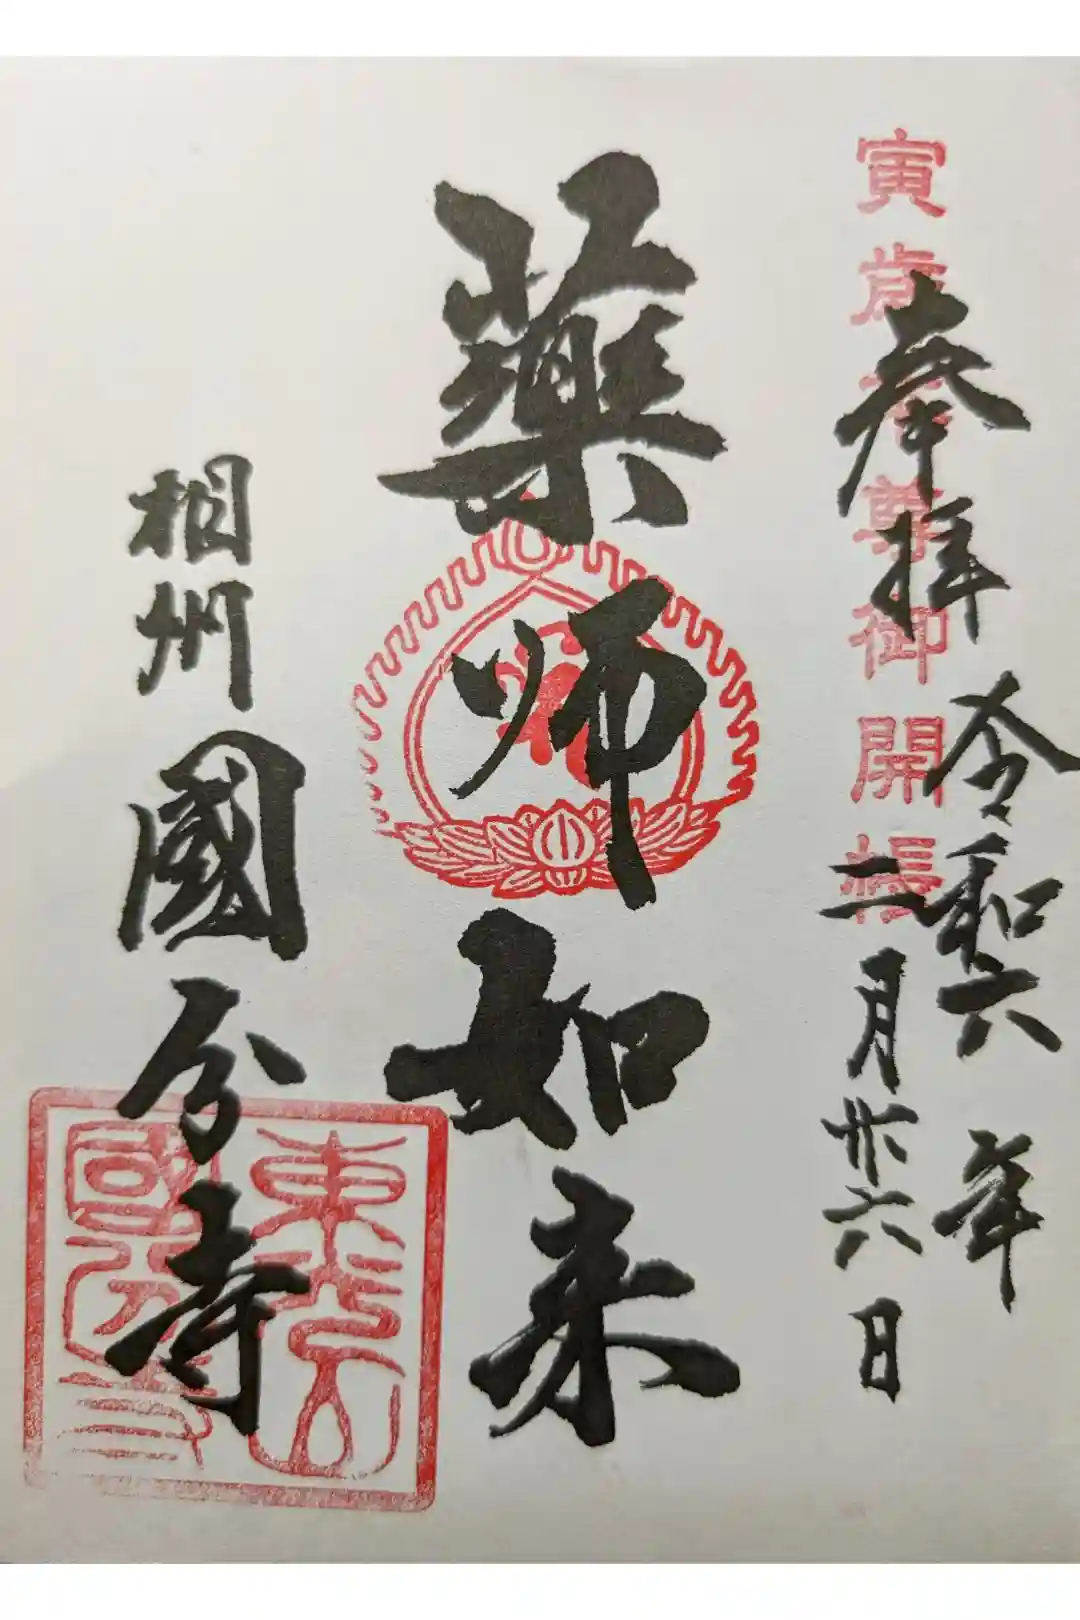 寅歳尊御開帳
奉拝
令和六年
二月廿六日
薬師如来
相州國分寺
東光山
國分寺